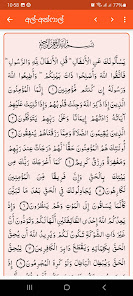 10:58
82%
අල්-අන්ෆාල්
بِسْمِ اللَّهِ الرَّحْمَٰنِ الرَّحِيمِ
يَسْأَلُونَكَ عَنِ الْأَنفَالِ قُلِ الْأَنفَالُ لِلَّهِ وَالرَّسُولِ
فَاتَّقُوا اللَّهَ وَأَصْلِحُوا ذَاتَ بَيْنِكُمْ وَأَطِيعُوا اللَّهَ
وَرَسُولَهُ إِن كُنتُم مُّؤْمِنِينَ ١ إِنَّمَا الْمُؤْمِنُونَ
الَّذِينَ إِذَا ذُكِرَ اللَّهُ وَجِلَتْ قُلُوبُهُمْ وَإِذَا تُلِيَتْ عَلَيْهِمْ
آيَاتُهُ زَادَتْهُمْ إِيمَانًا وَعَلَىٰ رَبِّهِمْ يَتَوَكَّلُونَ ٢ الَّذِينَ
يُقِيمُونَ الصَّلَاةَ وَمِمَّا رَزَقْنَاهُمْ يُنفِقُونَ ٣ أُولَٰئِكَ
هُمُ الْمُؤْمِنُونَ حَقًّا لَّهُمْ دَرَجَاتٌ عِندَ رَبِّهِمْ وَمَغْفِرَةٌ
وَرِزْقٌ كَرِيمٌ ٤ كَمَا أَخْرَجَكَ رَبُّكَ مِن بَيْتِكَ بِالْحَقِّ
وَإِنَّ فَرِيقًا مِّنَ الْمُؤْمِنِينَ لَكَارِهُونَ ٥ يُجَادِلُونَكَ فِي
الْحَقِّ بَعْدَ مَا تَبَيَّنَ كَأَنَّمَا يُسَاقُونَ إِلَى الْمَوْتِ وَهُمْ
يَنظُرُونَ ٦ وَإِذْ يَعِدُكُمُ اللَّهُ إِحْدَى الطَّائِفَتَيْنِ أَنَّهَا
لَكُمْ وَتَوَدُّونَ أَنَّ غَيْرَ ذَاتِ الشَّوْكَةِ تَكُونُ
لَكُمْ وَيُرِيدُ اللَّهُ أَن يُحِقَّ
الْحَقَّ بِكَلِمَاتِهِ وَيَقْطَعَ دَابِرَ الْكَافِرِينَ ٧ لِيُحِقَّ
الْحَقَّ وَيُبْطِلَ الْبَاطِلَ وَلَوْ كَرِهَ الْمُجْرِمُونَ ٨